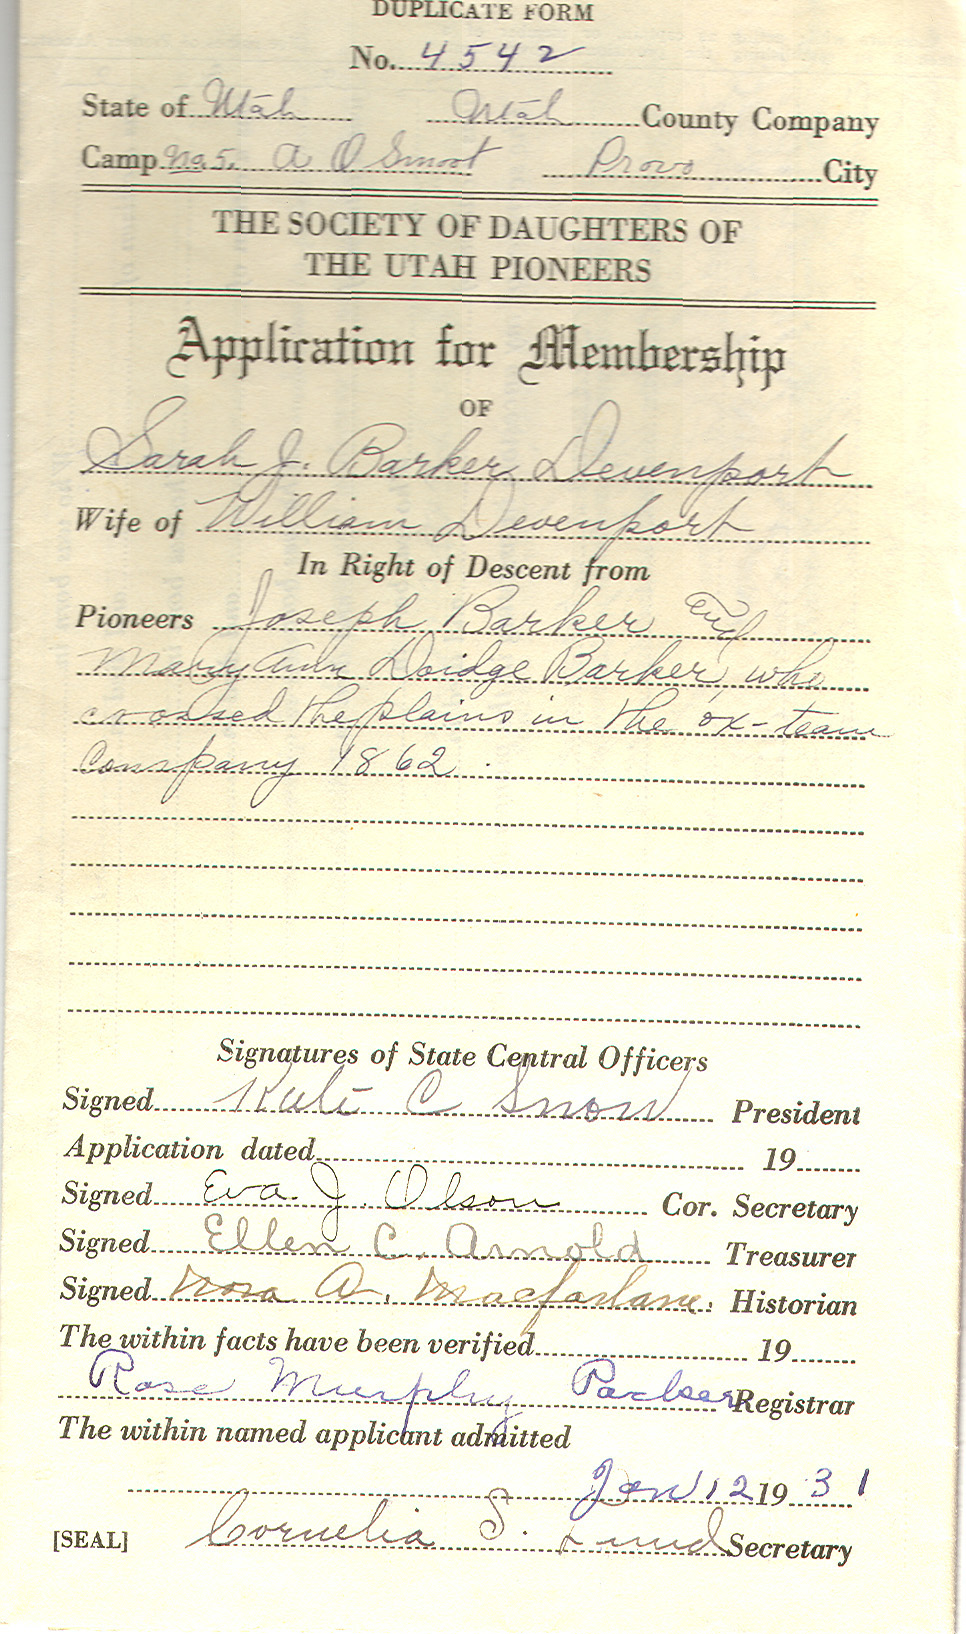 DUPLICATE FORM
No. 4542
State of Utah Utah County Company
Camp No. 5. A O Smoot Provo City
THE SOCIETY OF DAUGHTERS OF
THE UTAH PIONEERS
Application for Membership
OF
Sarah J. Barker Devenport
Wife of William Devenport
In Right of Descent from
Pioneers Joseph Barker and
Mary Ann Doidge Barker, who
crossed the plains in the ox-team
Company 1862.
Signatures of State Central Officers
Signed Kate C Snow President
Application dated 19
Signed Eva. J. Olson Cor. Secretary
Signed Ellen C. Arnold Treasurer
Signed Nora A. Macfarlane, Historian
The within facts have been verified 19
Rose Murphy Packer Registrar
The within named applicant admitted
Jan 12 1931
[SEAL] Cornelia S. Lund Secretary